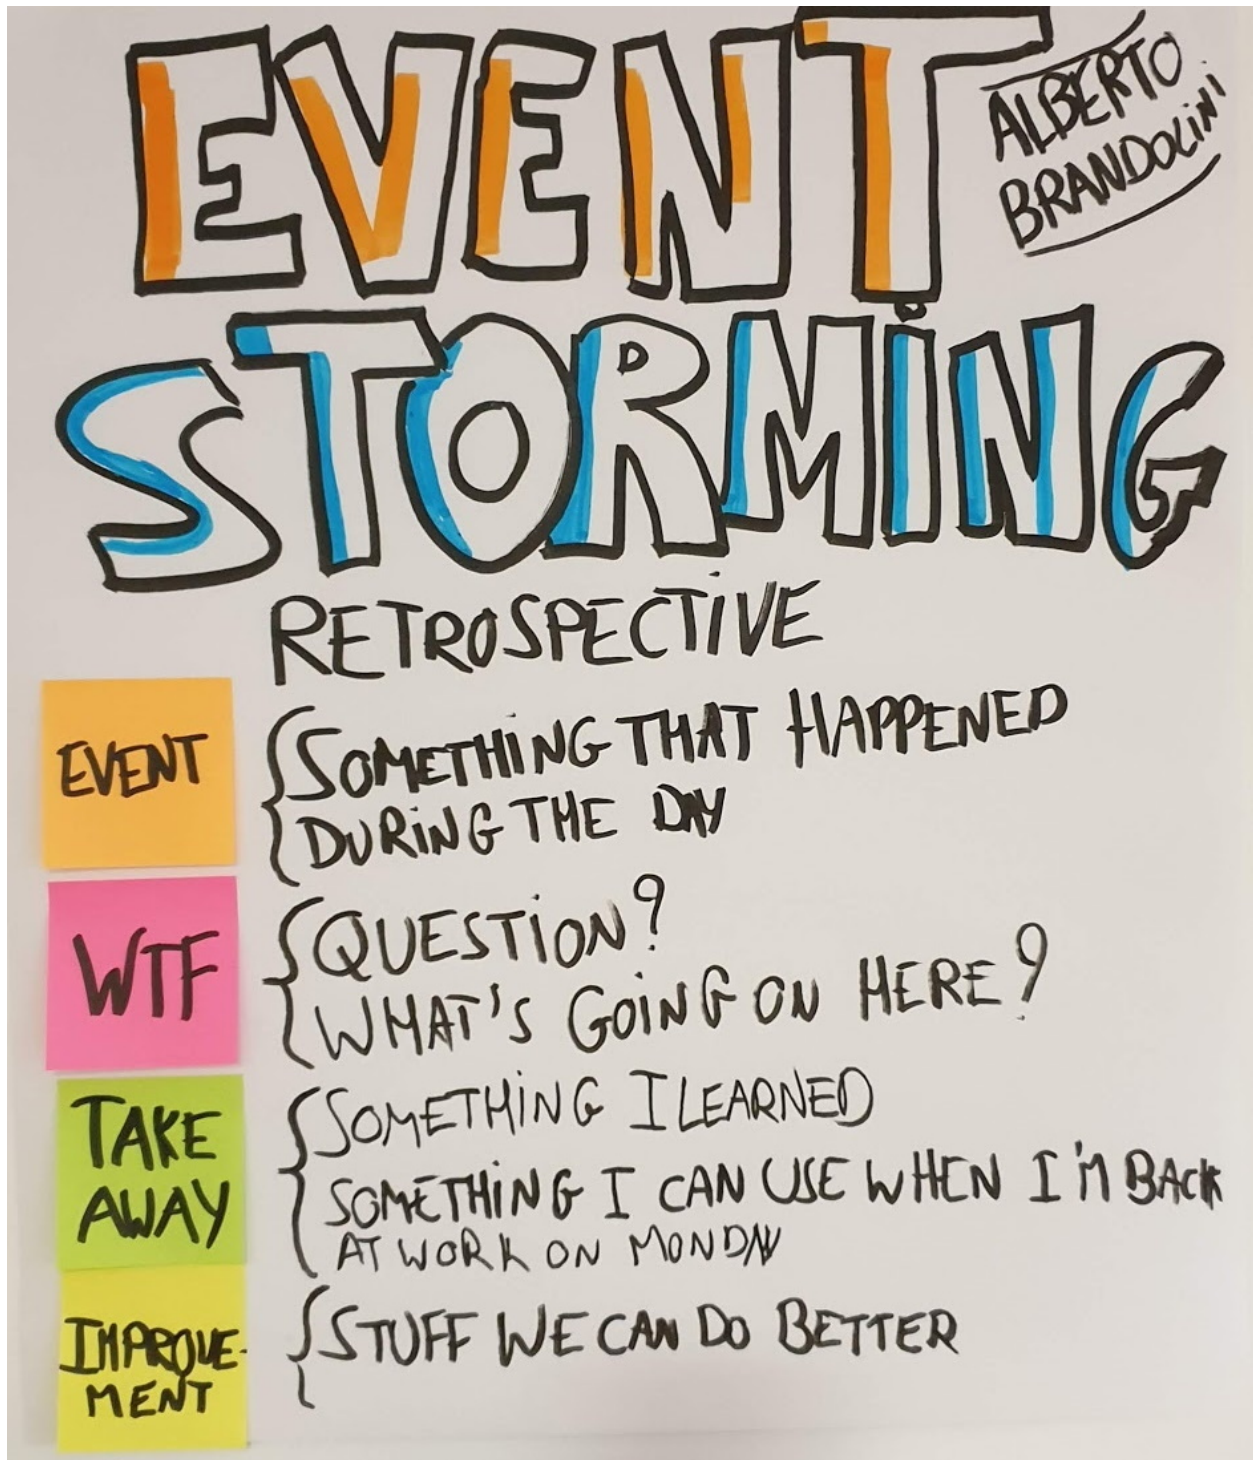 EVENT
ALBERTO
BRANDOLINI
STORMING
RETROSPECTIVE
EVENT
SOMETHING THAT HAPPENED
DURING THE DAY
WTF
QUESTION?
WHAT'S GOING ON HERE?
TAKE
AWAY
SOMETHING I LEARNED
SOMETHING I CAN USE WHEN I'M BACK
AT WORK ON MONDAY
IMPROVE-
MENT
STUFF WE CAN DO BETTER